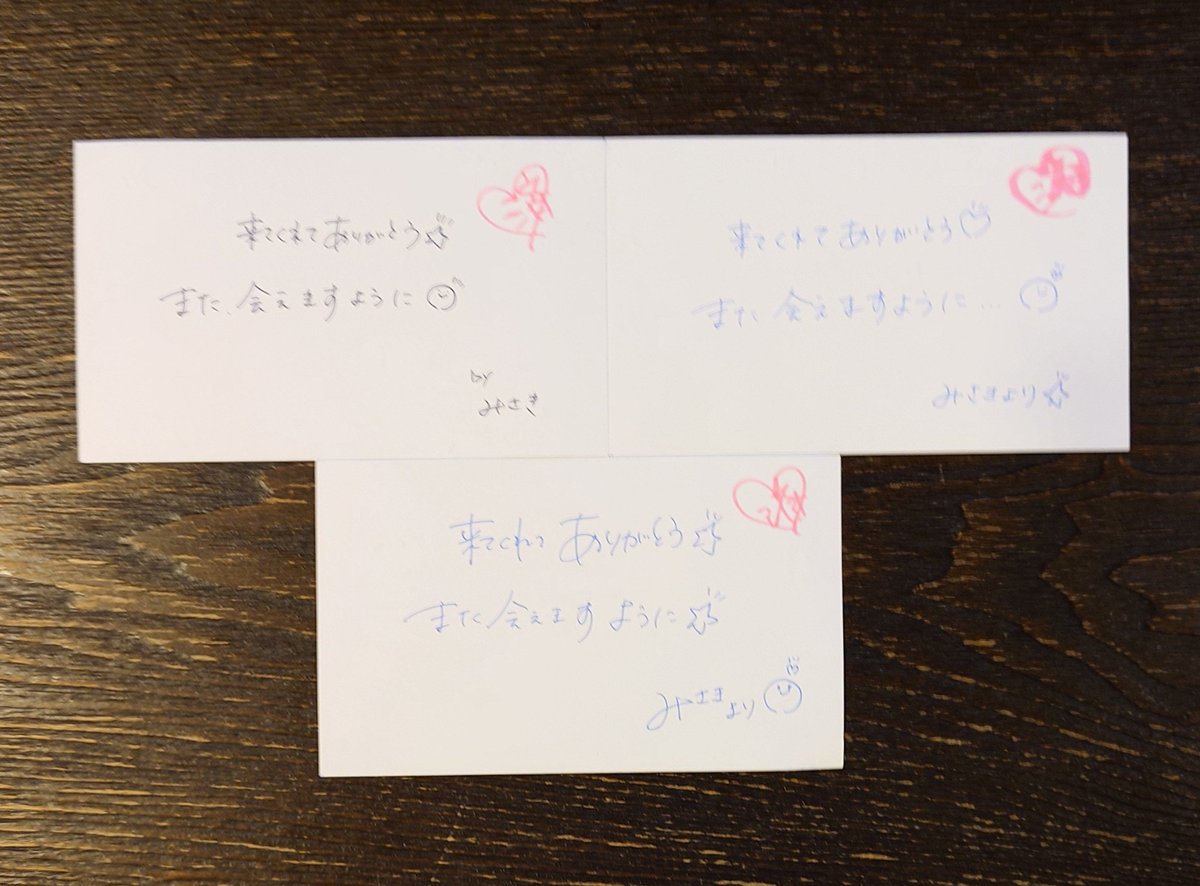 来てくれてありがとう
また、会えますように
by
みさき
来てくれてありがとう
また会えますように...
みさきより
来てくれてありがとう
また会えますように
みさきより